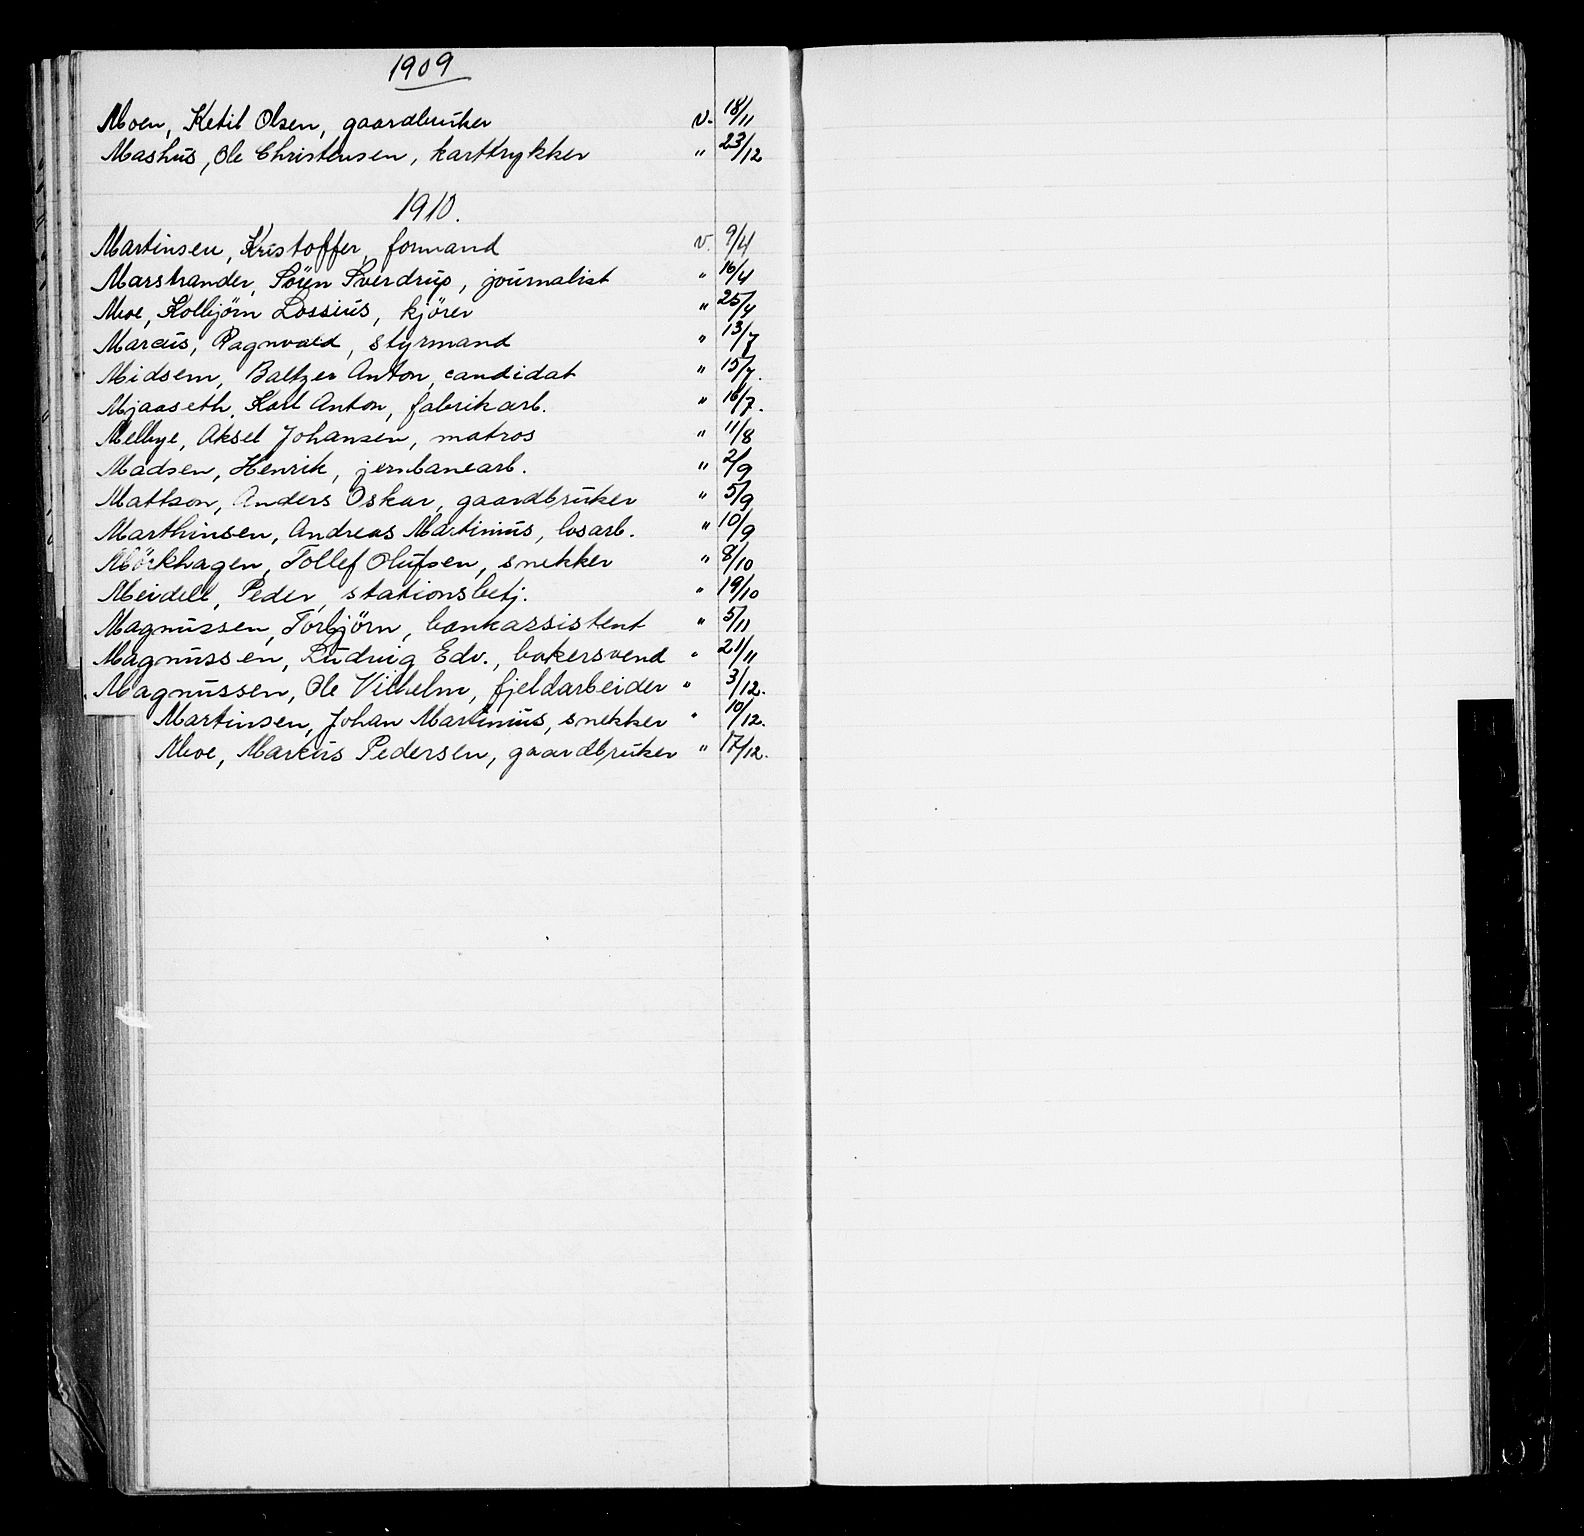 1909
Moen, Ketil Olsen, gaardbruker v. 18/11
Mashus, Ole Christensen, karttrykker " 23/12
1910.
Martinsen, Kristoffer, formand v. 9/4
Marstrander, Sören Sverdrup, journalist " 16/4
Moe, Kolbjörn Lossius, kjörer " 25/4
Marcus, Ragnvald, styrmand " 13/7
Midsem, Baltzer Anton, candidat " 15/7.
Mjaaseth, Karl Anton, fabrikarb. " 16/7.
Melbye, Aksel Johansen, matros " 11/8
Madsen, Henrik, jernbanearb. " 2/9
Mattson, Anders Oskar, gaardbruker " 5/9
Marthinsen, Andreas Martinius, losarb. " 10/9
Mörkhagen, Tollef Olufsen, snekker " 8/10
Meidell, Peder, stationsbetj. " 19/10
Magnussen, Torbjörn, bankassistent " 5/11
Magnussen, Ludvig Edv., bakersvend " 21/11
Magnussen, Ole Vilhelm, fjeldarbeider " 3/12.
Martinsen, Johan Martinius, snekker " 10/12.
Moe, Markus Pedersen, gaardbruker " 17/12.